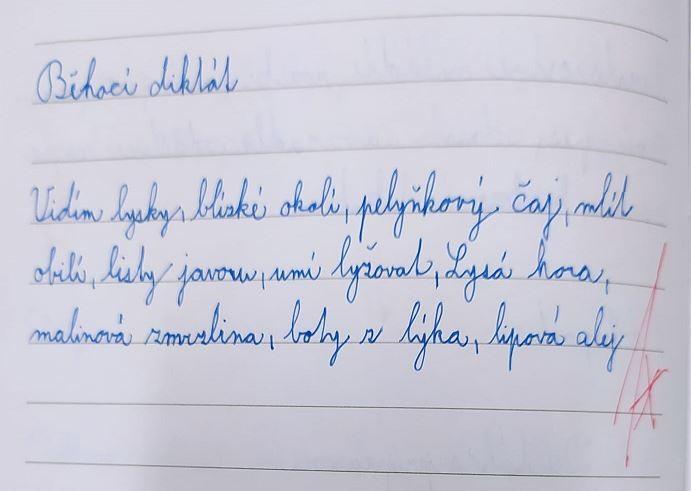 Běhací diktát
Vidím lysky, blízké okolí, pelyňkový čaj, mlít
obilí, listy javoru, umí lyžovat, Lysá hora,
malinová zmrzlina, boty z lýka, lipová alej